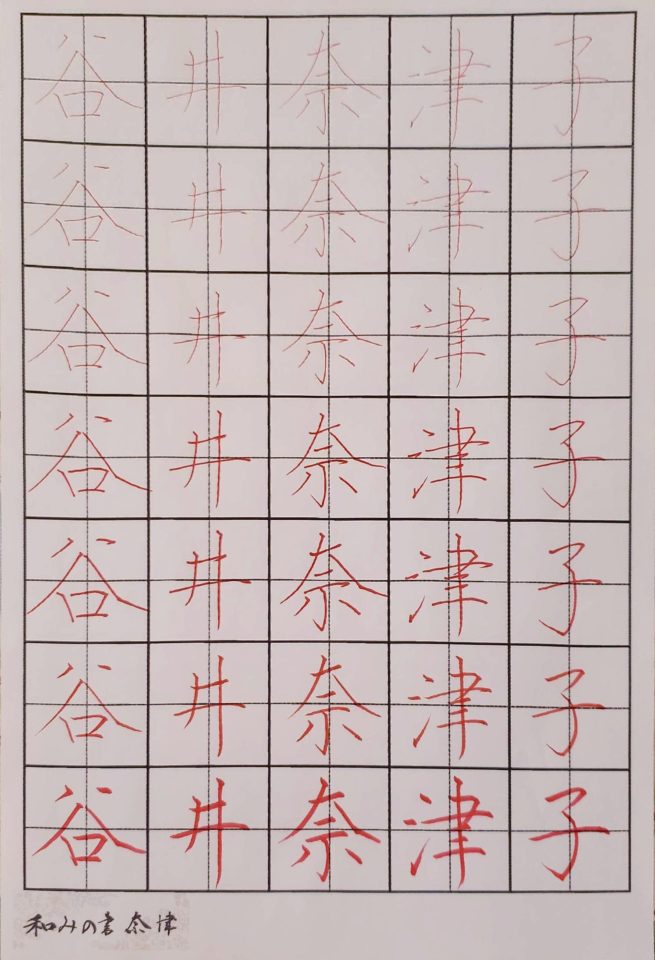 谷井奈津子
谷井奈津子
谷井奈津子
谷井奈津子
谷井奈津子
谷井奈津子
谷井奈津子
和みの書 奈津